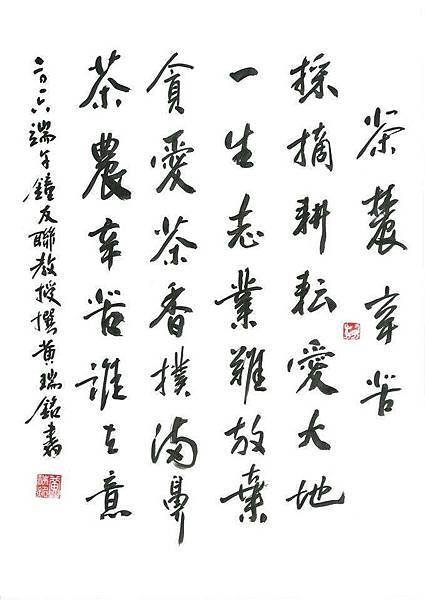 茶農辛苦
採摘耕耘愛大地
一生志業難放棄
貪愛茶香撲滿鼻
茶農辛苦誰在意
二〇一六端午鐘友聯教授撰黃瑞銘書